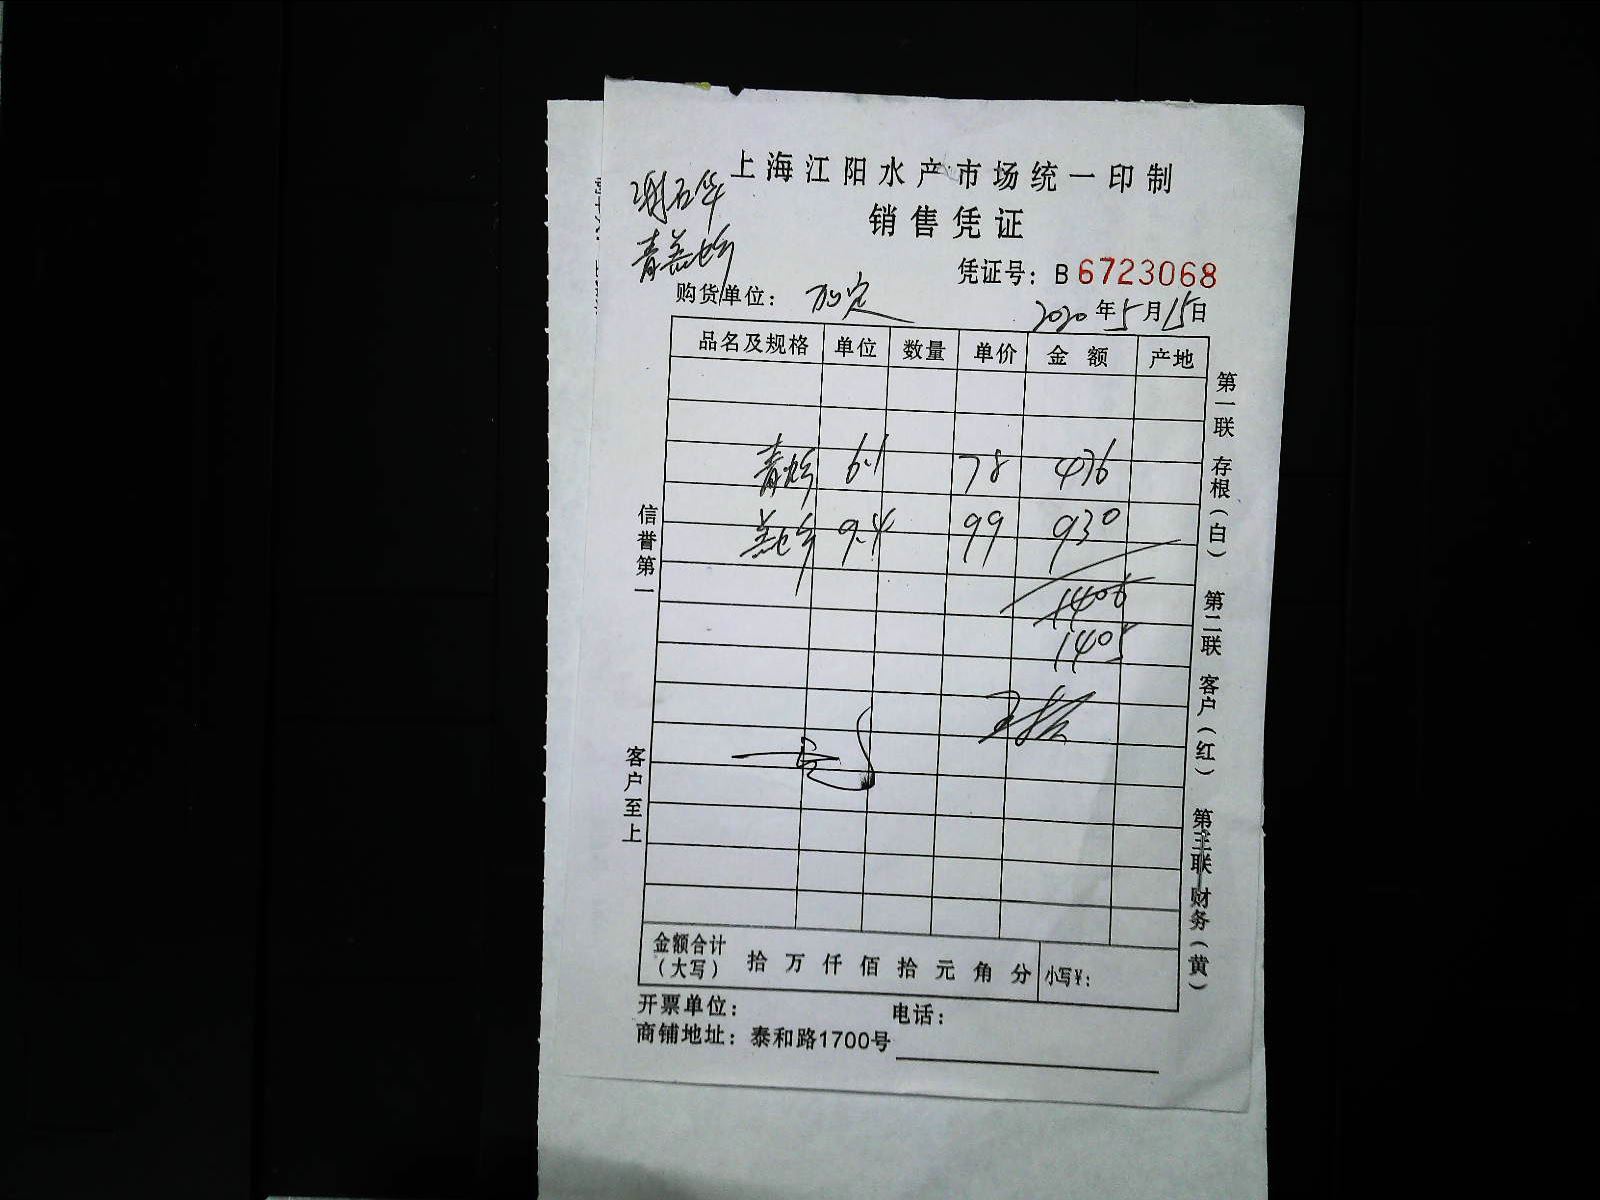 上海江阳水产市场统一印制
谢石华
销售凭证
凭证号：B 6723068
购货单位：
2020年5月15日
品名及规格 单位 数量 单价 金额 产地
6.1 78 476
9.4 99 930
1406
1405
信誉第一
客户至上
第一联 存根（白） 第二联 客户（红） 第三联 财务（黄）
金额合计（大写） 拾 万 仟 佰 拾 元 角 分 小写¥：
开票单位： 电话：
商铺地址：泰和路1700号